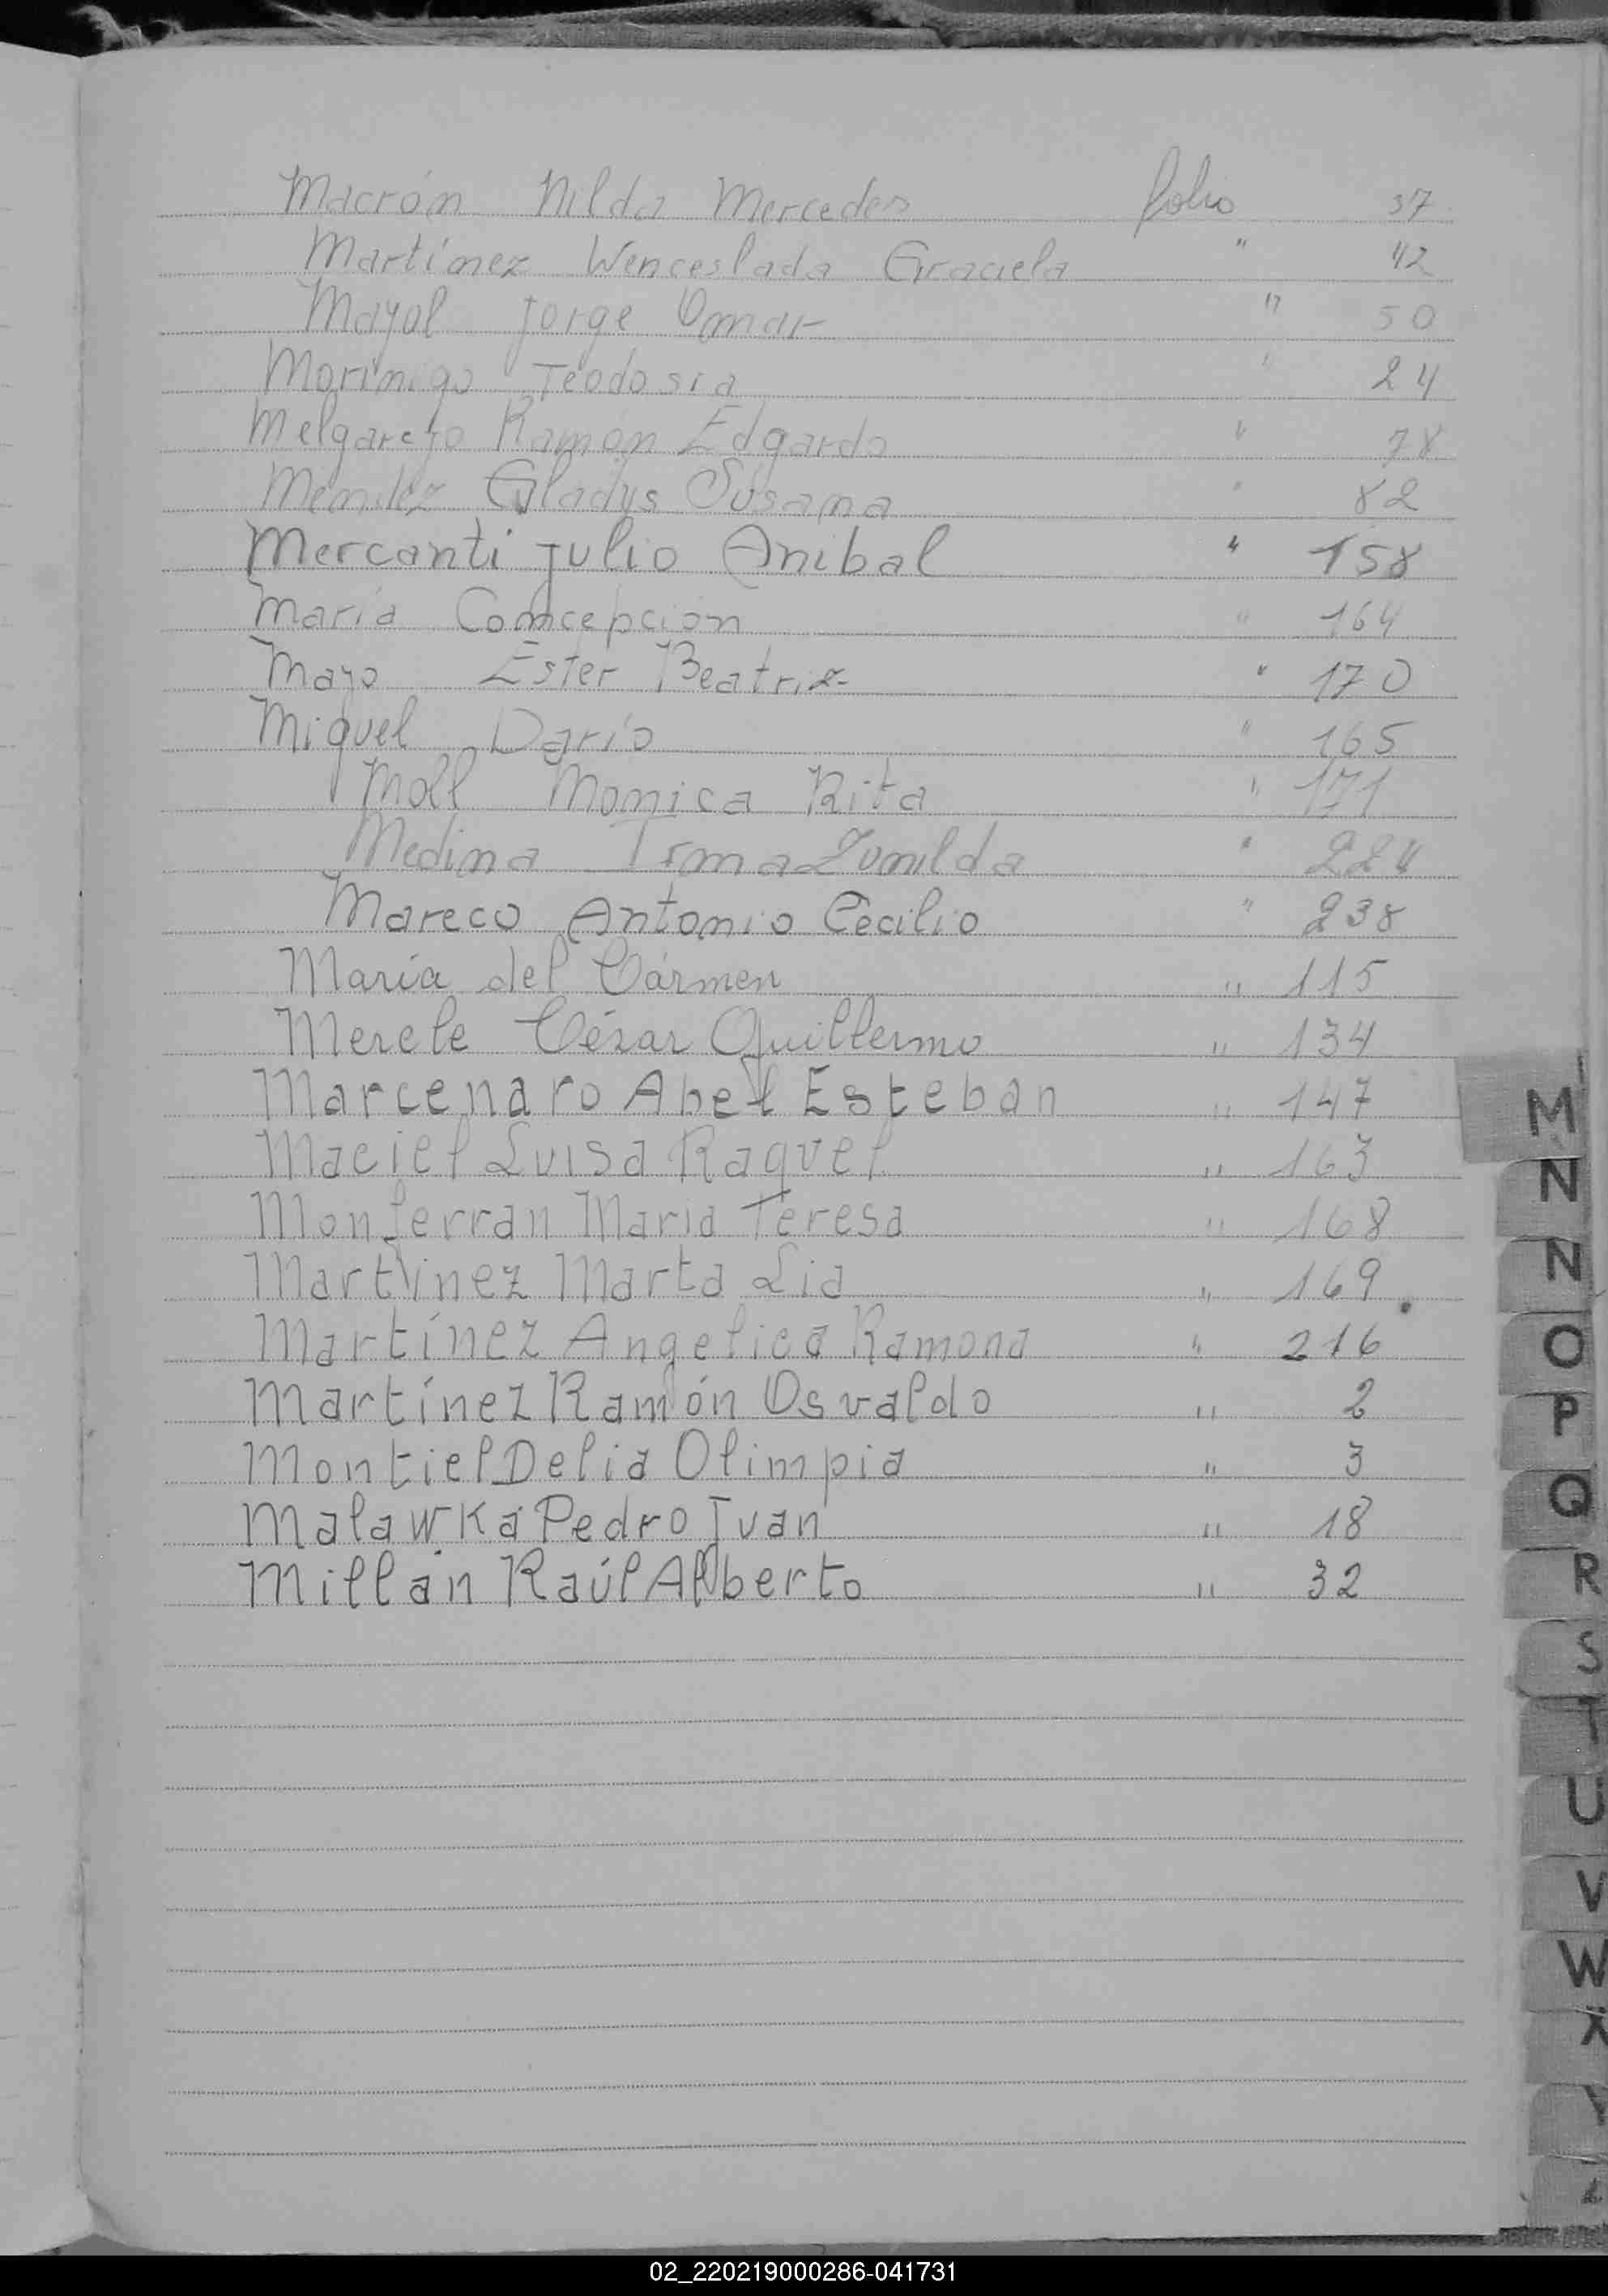 Macrón Nilda Mercedes folio 37
Martínez Wenceslada Graciela " 42
Mayol Jorge Omar " 50
Morinigo Teodosia " 24
Melgarejo Ramón Edgardo " 78
Mendez Gladys Susana " 82
Mercanti Julio Anibal " 158
María Concepción " 164
Mayo Ester Beatriz " 170
Miguel Darío " 165
Moll Monica Rita " 171
Medina Irma Zunilda " 224
Mareco Antonio Cecilio " 238
María del Cármen " 115
Merele César Guillermo " 134
Marcenaro Abel Esteban " 147
Maciel Luisa Raquel " 163
Monferran Maria Teresa " 168
Martínez Marta Lia " 169
Martínez Angelica Ramona " 216
Martínez Ramón Osvaldo " 2
Montiel Delia Olimpia " 3
Malawka Pedro Ivan " 18
Millán Raúl Alberto " 32
M
N
N
O
P
Q
R
S
T
U
V
W
X
Y
Z
02_220219000286-041731